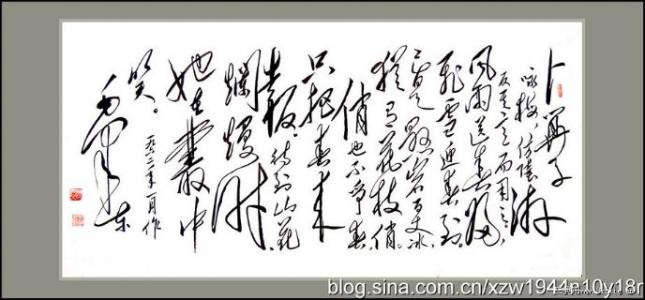 卜算子
咏梅,仿陸游
反其意而用之,
風雨送春歸
飛雪迎春到
已是懸岩百丈冰
猶有花枝俏。
俏也不争春
只把春来
報。待到山花
爛熳時
她在叢中
笑。
一九六二年一月作
毛澤东
blog.sina.com.cn/xzw1944n10y18r